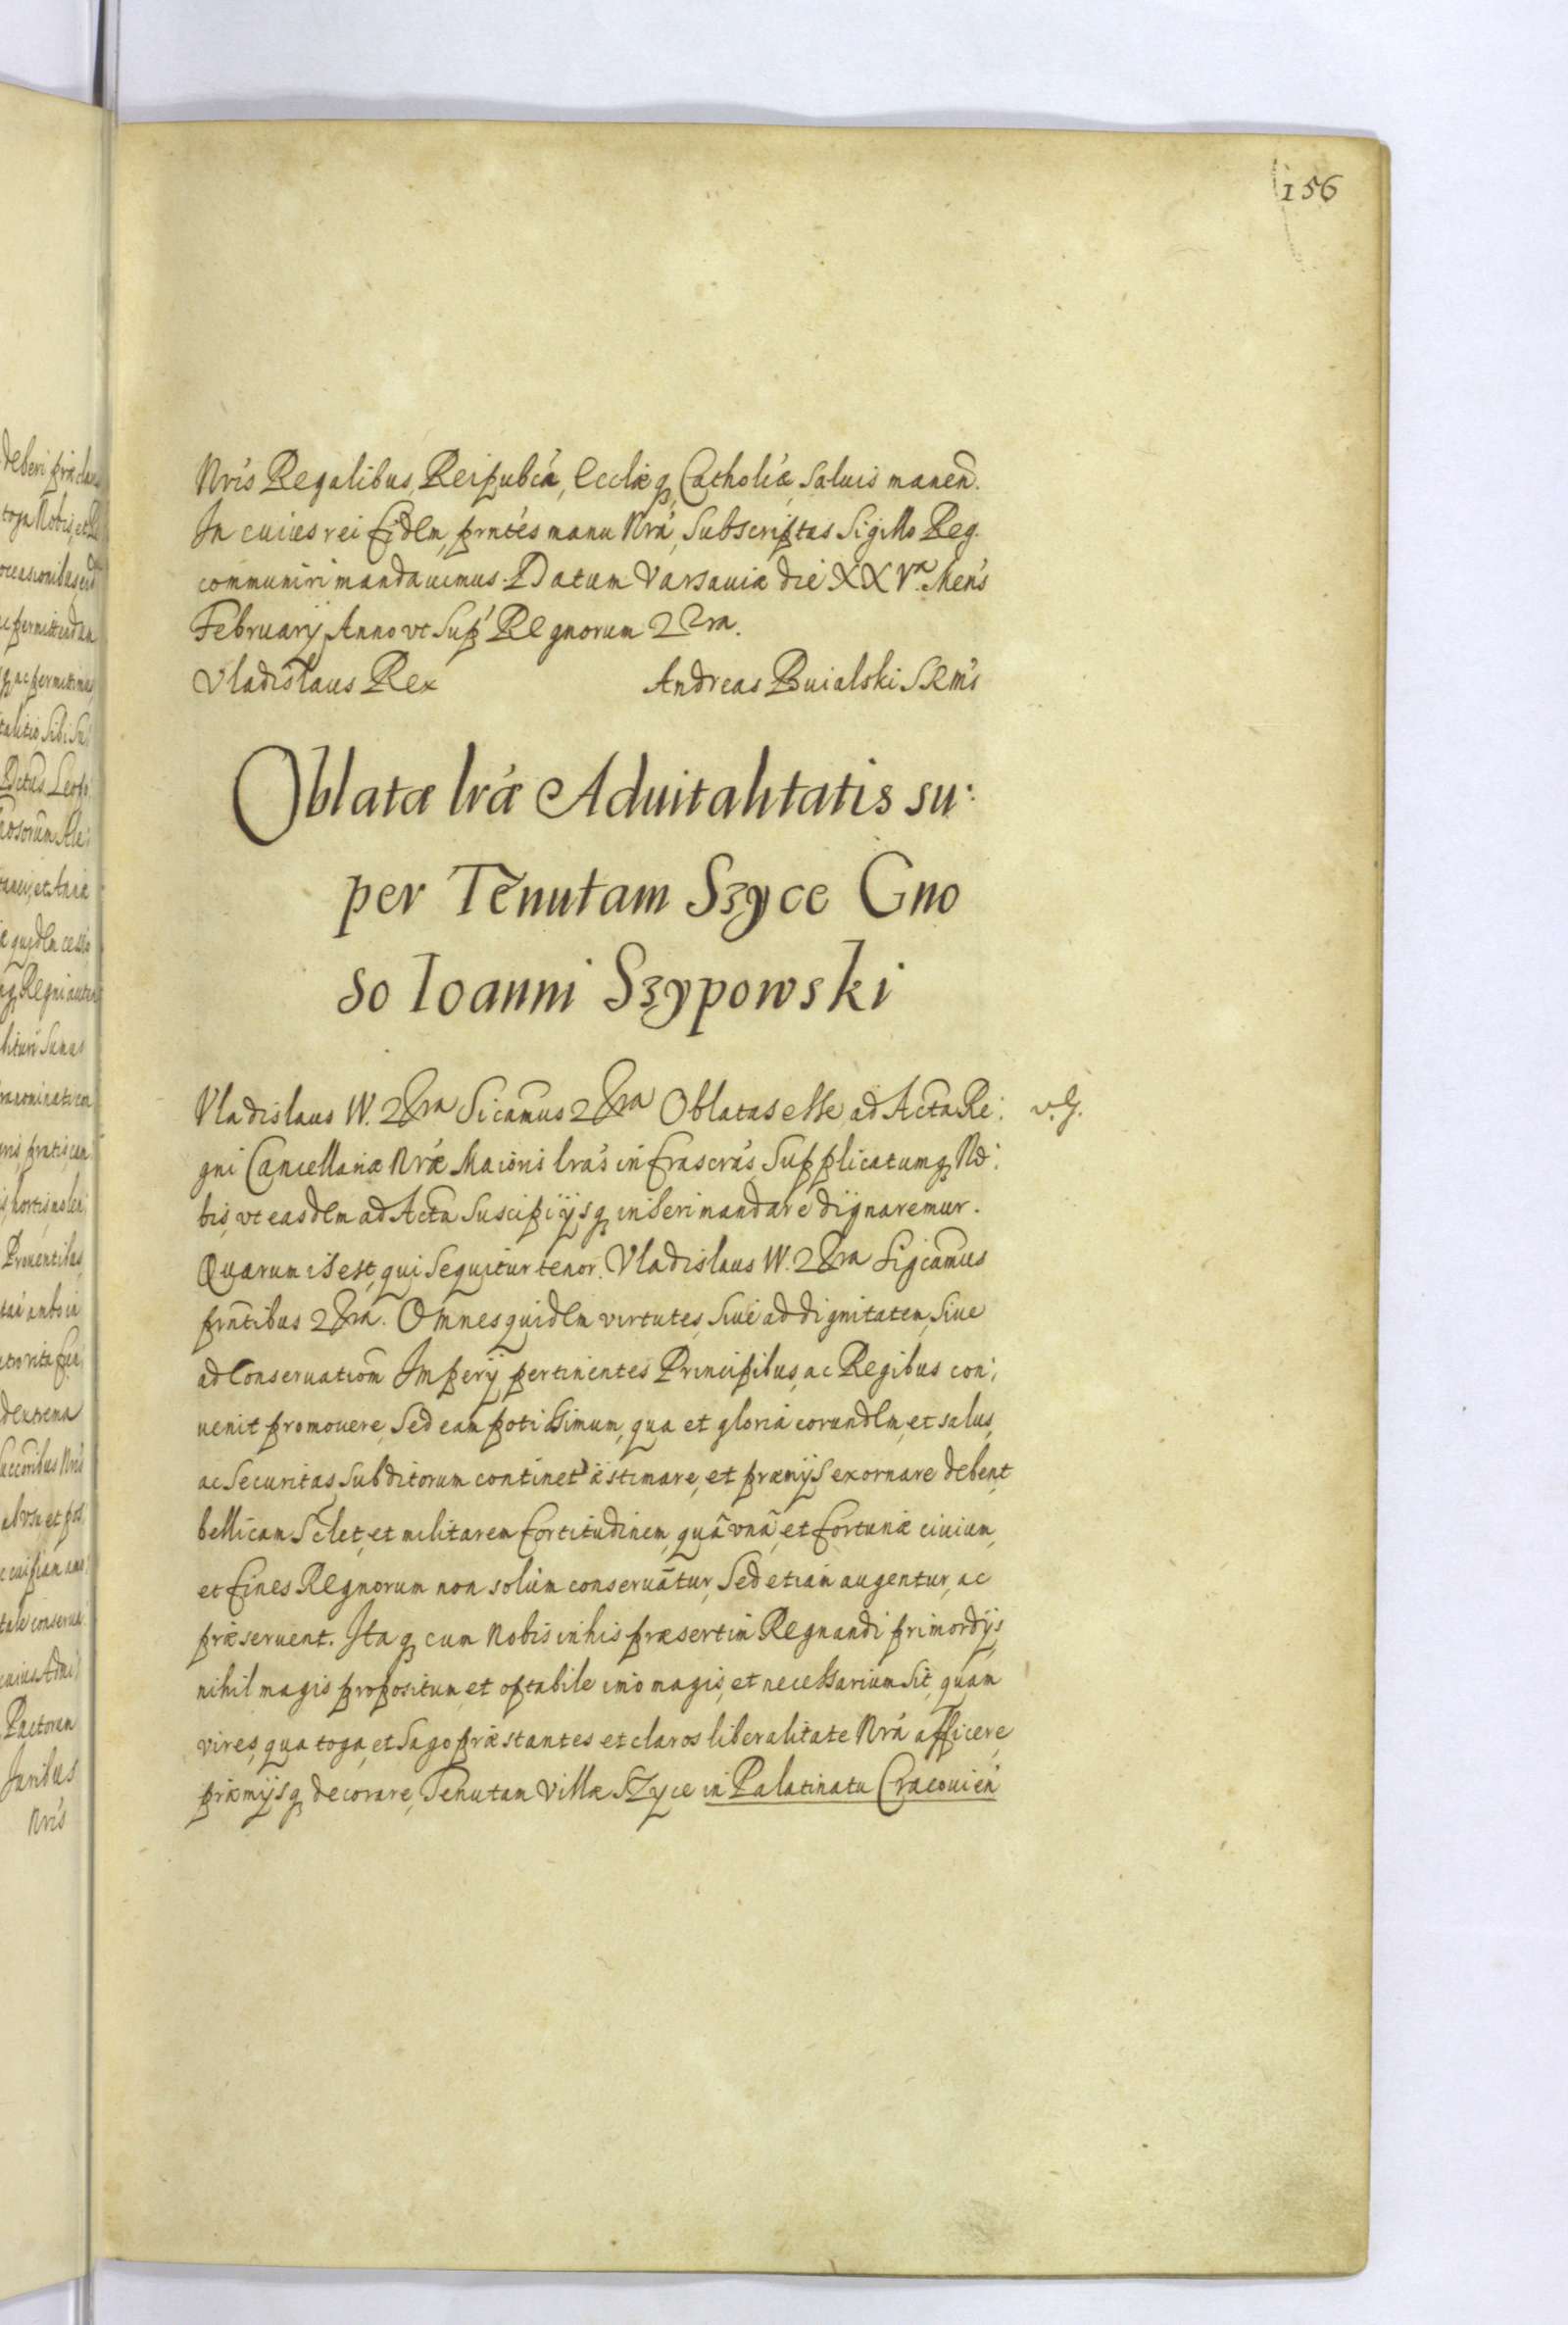 156
Nrîs Regalibus, Reipubcæ, Ecclæq, Catholcæ, saluis manen̄.
In cuius rei fidem, prntes manu Nrá, subscriptas Sigillo Reg.
communiri mandauimus. Datum Varsauiæ die XXVa. Mens
February Anno vt Sup' Regnorum 2 ra.
Vladislaus Rex Andreas Buialski SRMs
Oblatæ lræ Aduitalitatis su:
per Tenutam Szyce Gno
so Ioanni Szypowski
Vladislaus W. 2 ra Sicamus 2 ra Oblatas esse ad Acta Re: v. g.
gni Cancellariæ Nræ Maioris lras infrascras, Supplicatumq No:
bis, vt easdem ad Acta suscipi ijsq inseri mandare dignaremur.
Quarum is est, qui sequitur tenor. Vladislaus W. 2 ra Sigcamus
prntibus 2 ra. Omnes quidem virtutes, siue ad dignitatem, siue
ad Conseruatiom Imperij pertinentes Principibus, ac Regibus con:
uenit promouere, sed eam potissimum, qua et gloria eorundem, et salus,
ac securitas, subditorum continet' æstimare, et præmijs exornare debent,
bellicam scilet, et militarem fortitudinem, quâ vnâ, et fortunæ ciuium,
et fines Regnorum non solùm conseruātur, sed etiam augentur, ac
præseruent. Itaq cum Nobis in his præsertim Regnandi primordijs,
nihil magis propositum, et optabile imò magis, et necessarium sit, quam
vires, qua toga, et sago præstantes et claros liberalitate Nrá afficere,
præmijsq decorare, Tenutam Villæ Szyce in Palatinatu Cracouień